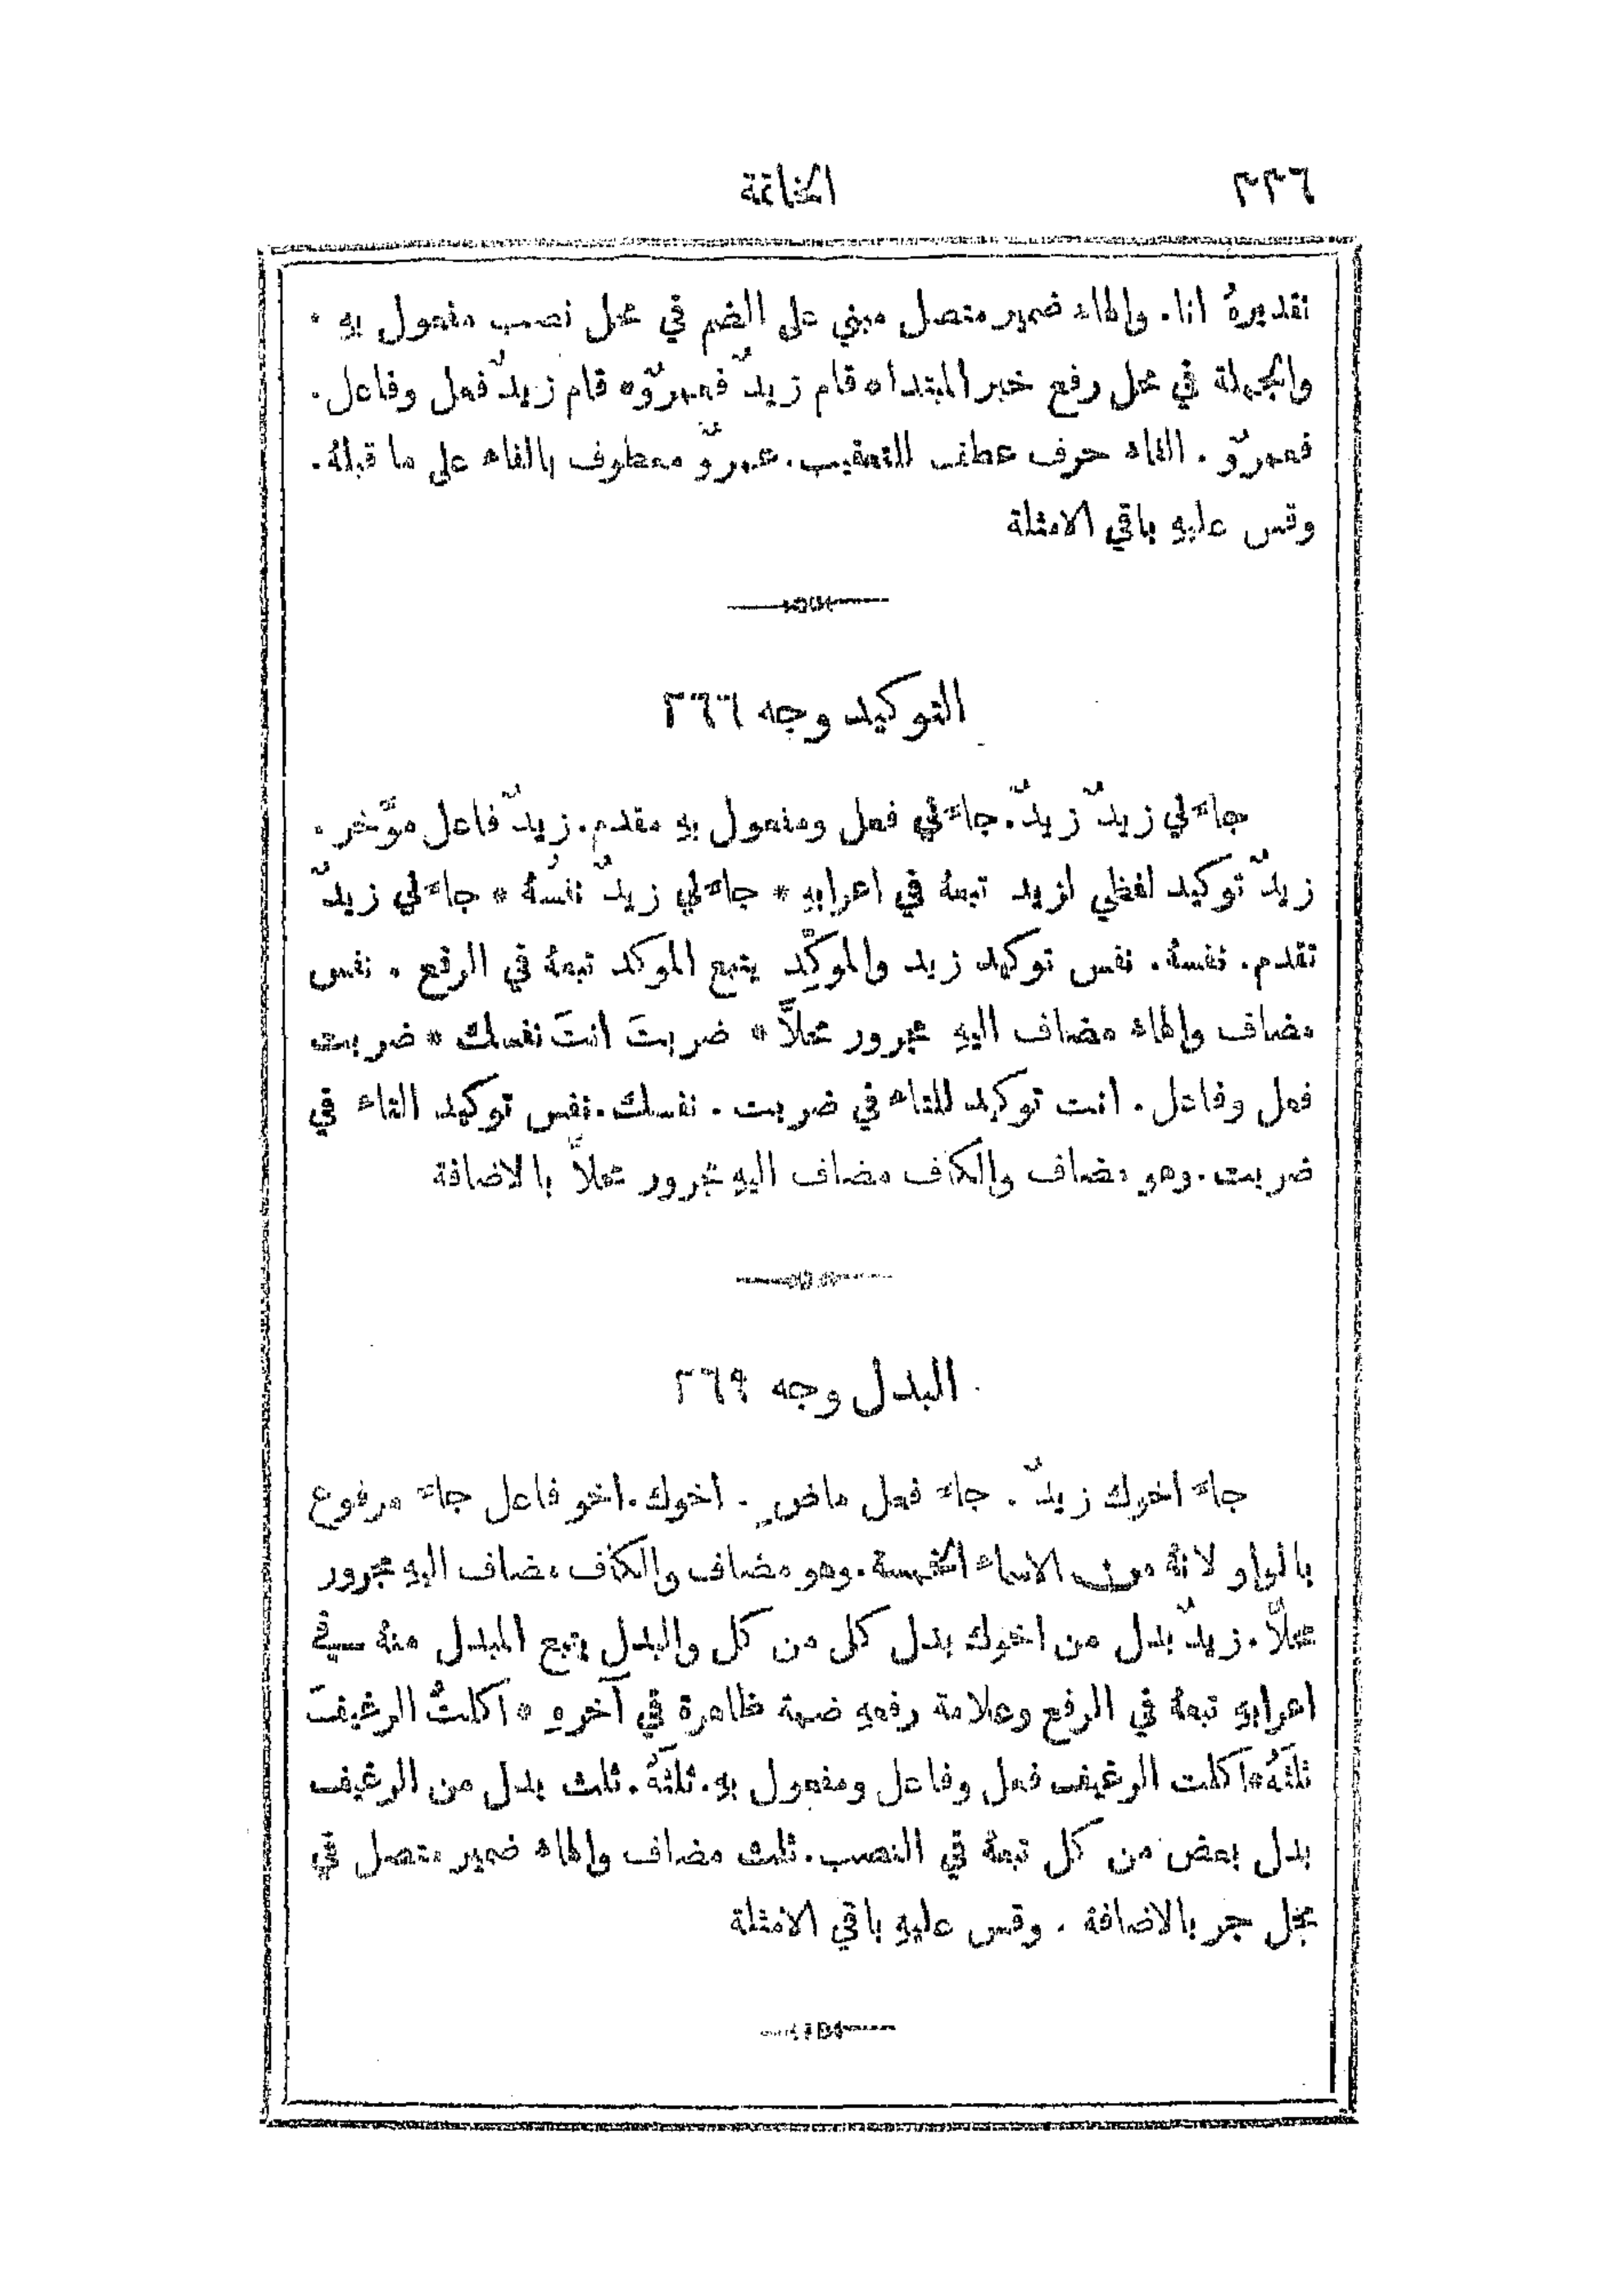 ٣٣٦ الخاتمة
تقديرهُ انا. والهاء ضمير متصل مبني على الضم في محل نصب مفعول به.
والجملة في محل رفع خبر المبتدا * قام زيدٌ فعمروٌ * قام زيدٌ فعل وفاعل.
فعمروٌ. الفاء حرف عطف للتعقيب. عمروٌ معطوف بالفاء على ما قبلهُ.
وقس عليهِ باقي الامثلة
التوكيد وجه ٢٦٦
جاءني زيدٌ زيدٌ. جاءني فعل ومفعول به مقدم. زيدٌ فاعل موَّخر.
زيدٌ توكيد لفظي لزيد تبعهُ في اعرابهِ * جاءني زيدٌ نفسُهُ * جاءني زيدٌ
تقدم. نفسهُ. نفس توكيد زيد والموكِّد يتبع الموكد تبعهُ في الرفع. نفس
مضاف والهاء مضاف اليهِ مجرور محلاًّ * ضربتَ انتَ نفسك * ضربت
فعل وفاعل. انت توكيد للتاء في ضربت. نفسك. نفس توكيد التاء في
ضربت. وهو مضاف والكاف مضاف اليهِ مجرور محلاًّ بالاضافة
البدل وجه ٢٦٩
جاء اخوك زيدٌ. جاء فعل ماضٍ. اخوك. اخو فاعل جاء مرفوع
بالواو لانهُ من الاسماء الخمسة. وهو مضاف والكاف مضاف اليهِ مجرور
محلاًّ. زيدٌ بدل من اخوك بدل كل من كل والبدل يتبع المبدل منهُ في
اعرابهِ تبعهُ في الرفع وعلامة رفعهِ ضمة ظاهرة في آخرهِ * اكلتُ الرغيفَ
ثلثَهُ * اكلت الرغيف فعل وفاعل ومفعول به. ثلثهُ. ثلث بدل من الرغيف
بدل بعض من كل تبعهُ في النصب. ثلث مضاف والهاء ضمير متصل في
محل جر بالاضافة. وقس عليهِ باقي الامثلة